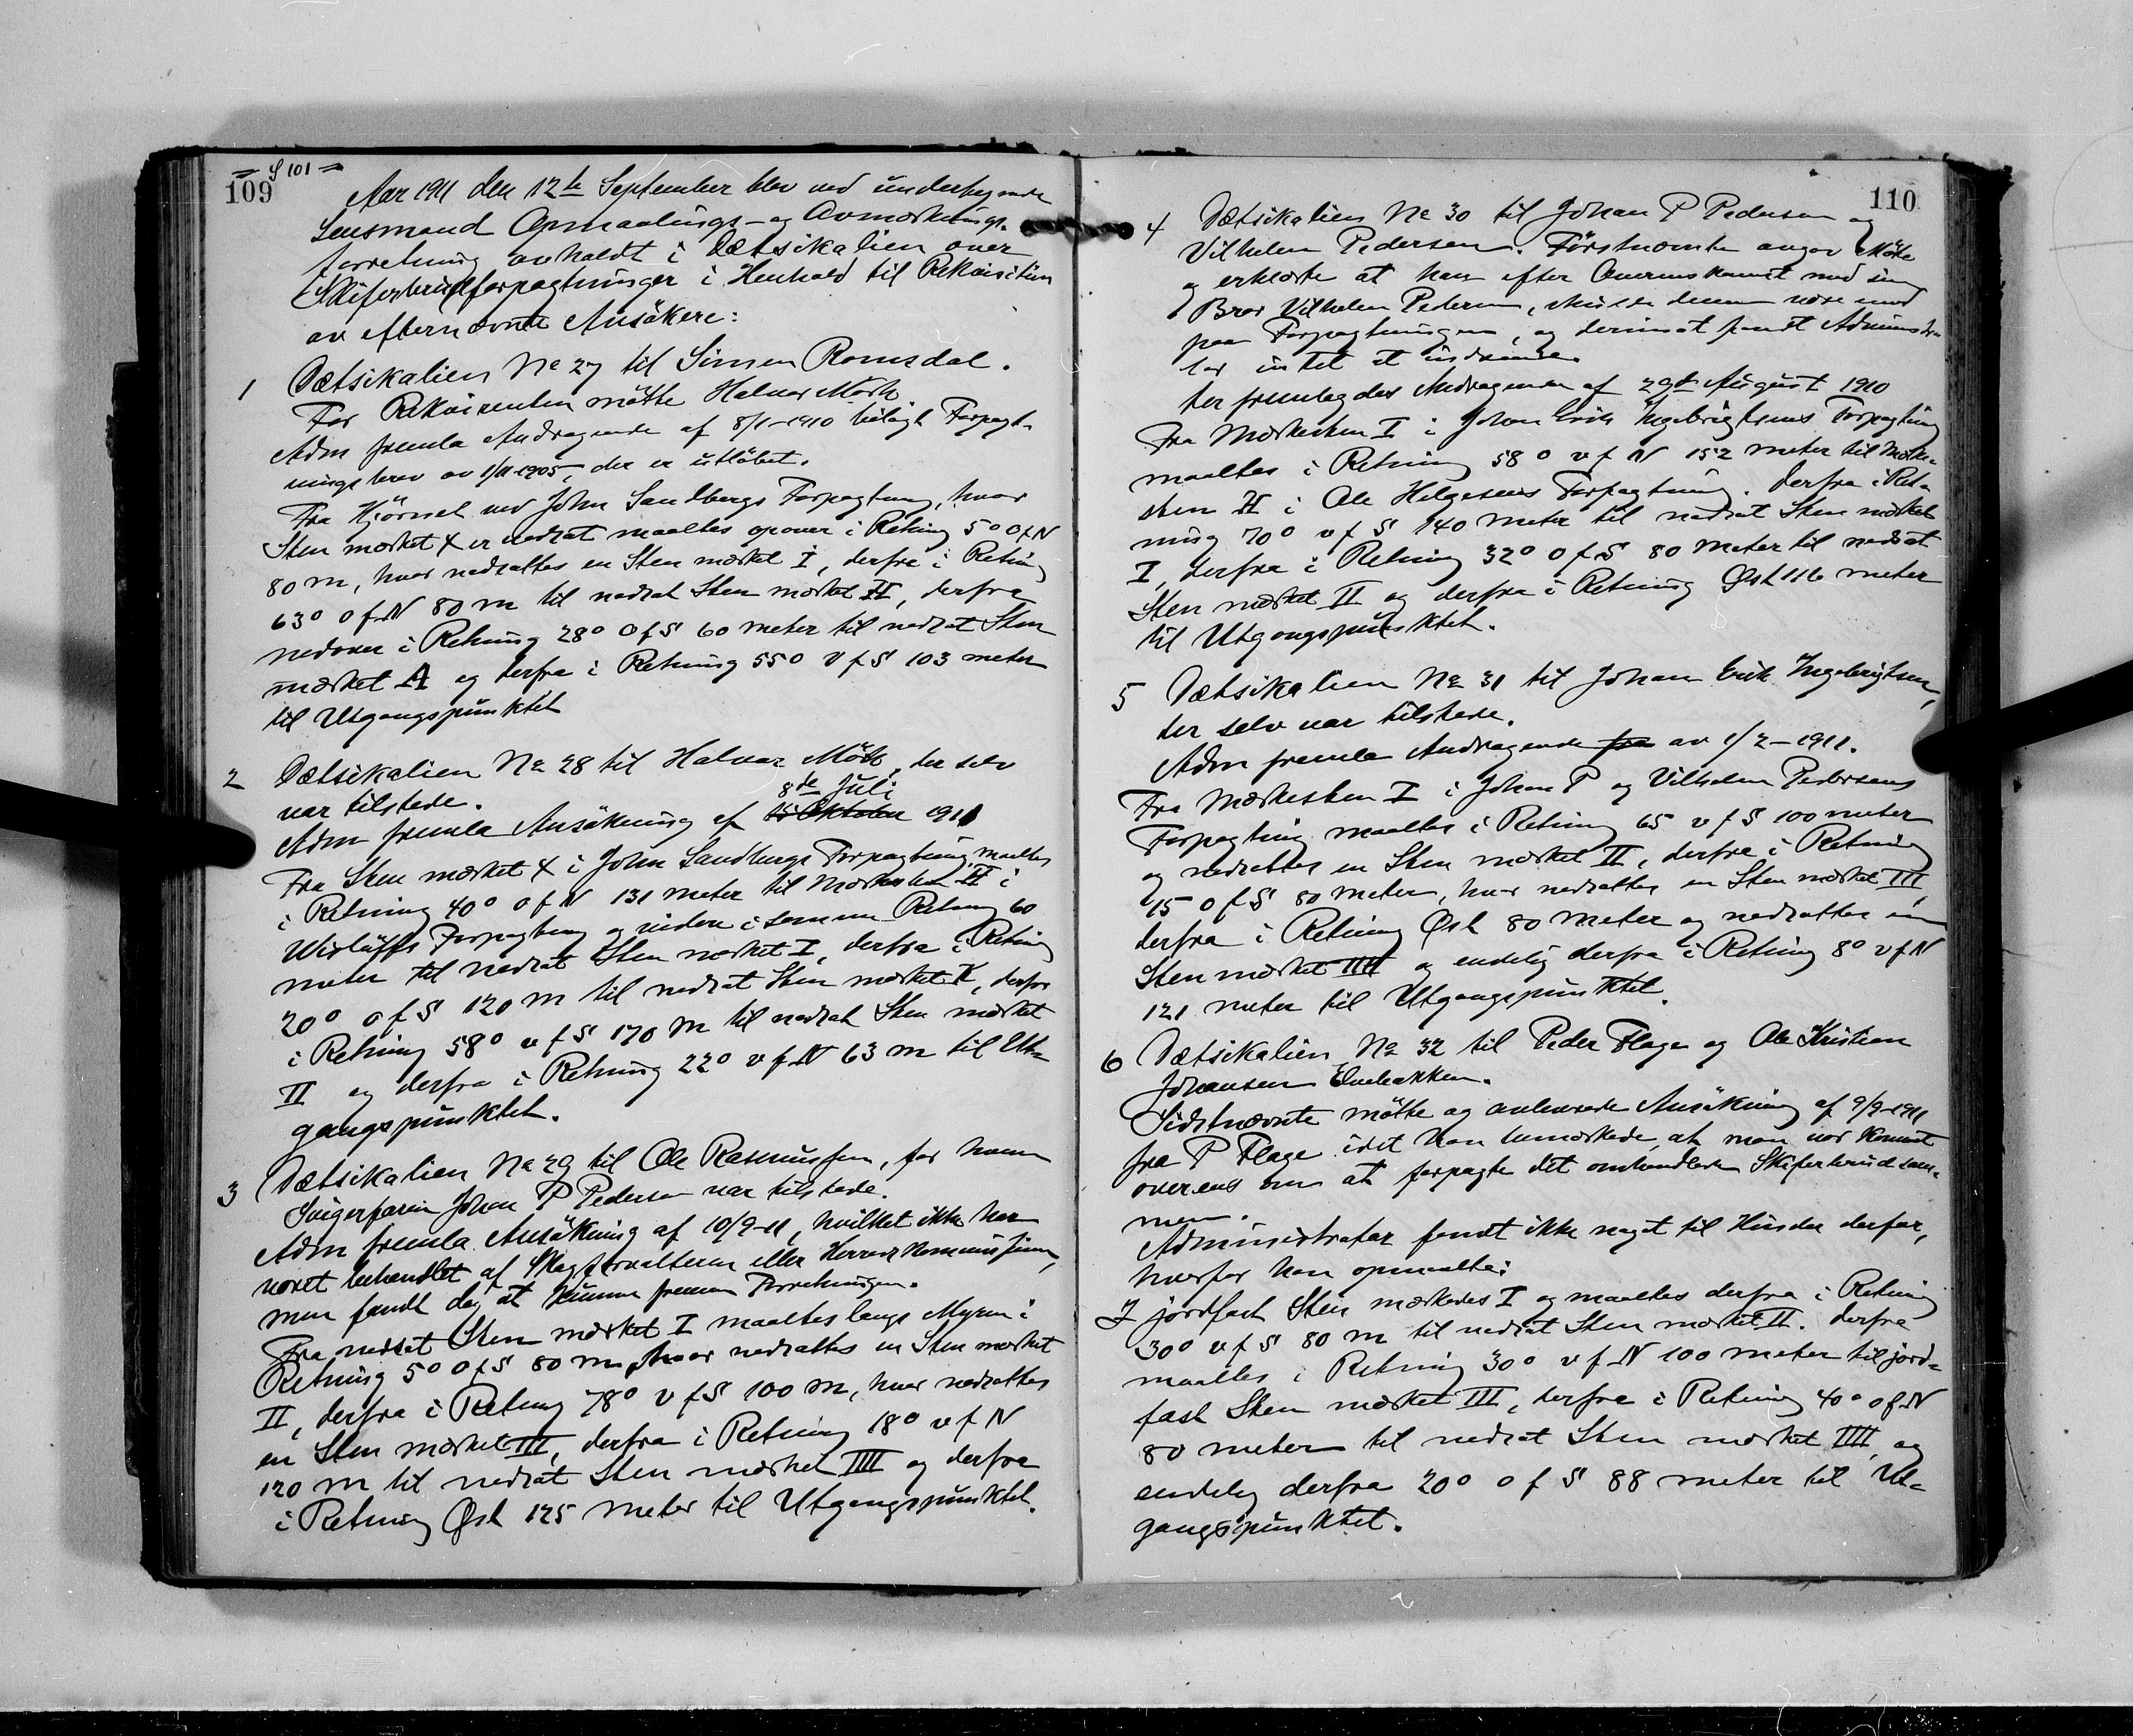 109 = § 101 =
Aar 1911 den 12te September blev ved undertegnede
Lensmand Opmaalings- og Avmerknings-
forretning avholdt i Dætsikalien over
Skiferbrudforpagtninger i Henhold til Rekvisition
av efternævnte Ansökere:
1 Dætsikalien No 27 til Simen Romsdal.
For Rekvirenten mötte Halvar
Adm fremla Andragende af 8/1-1910 bilagt Forpagt-
ningsbrev av 1/11-1905, der er utlöbet.
Fra Hjörnet ved John Sandbergs Forpagtning, hvor
Sten mærket X er nedsat maaltes opover i Retning 5° O f N
80 m, hvor nedsattes en Sten mærket I, derfra i Retning
63° O f N 80 m til nedsat Sten mærket II, derfra
nedover i Retning 28° O f S 60 meter til nedsat Sten
mærket A og derfra i Retning 55° V f S 103 meter
til Utgangspunktet
2 Dætsikalien No 28 til Halvar der selv
var tilstede. 8de Juli
Adm fremla Ansökning af 15 Oktober 1911
Fra Sten mærket X i John Sandbergs Forpagtning maaltes
i Retning 40° O f N 131 meter til Mærkesten II i
Wisløffs Forpagtning og videre i samme Retning 60
meter til nedsat Sten mærket I, derfra i Retning
20° O f S 120 m til nedsat Sten mærket II, derfra
i Retning 58° v f S 170 m til nedsat Sten mærket
II og derfra i Retning 22° v f N 63 m til Ut-
gangspunktet.
3 Dætsikalien No 29 til Ole Rasmussen, for hvem
Svigerfaren Johan P Pedersen var tilstede.
Adm fremla Ansökning af 10/9-11, hvilket ikke har
været behandlet af Skogforvalteren eller Herredskommissionen,
men fandt dog at kunne fremme Forretningen.
Fra nedsat Sten mærket I maaltes langs Myren i
Retning 5° O f S 80 m, hvor nedsattes en Sten mærket
II, derfra i Retning 78° v f S 100 m, hvor nedsattes
en Sten mærket III, derfra i Retning 18° v f N
120 m til nedsat Sten mærket IIII og derfra
i Retning Øst 125 meter til Utgangspunktet.
110
4 Dætsikalien No 30 til Johan P Pedersen og
Vilhelm Pedersen. Förstnævnte angav Möte
og erklærte at han efter Overenskomst med sin
Bror Vilhelm Pedersen, skulde denne være med
paa Forpagtningen, og derimot fandt Administra-
tor intet at indvende.
Der fremlagdes Andragende af 29de August 1910
Fra Mærkesten I i Johan Erik Ingebrigtsens Forpagtning
maaltes i Retning 58° v f N 152 meter til Mærke-
sten II i Ole Helgesens Forpagtning. Derfra i Ret-
ning 70° v f S 140 meter til nedsat Sten mærket
I, derfra i Retning 32° O f S 80 Meter til nedsat
Sten mærket II og derfra i Retning Øst 116 meter
til Utgangspunktet.
5 Dætsikalien No 31 til Johan Erik Ingebrigtsen,
der selv var tilstede.
Adm fremla Andragende fra av 1/2-1911.
Fra Mærkesten I i Johan P og Vilhelm Pedersens
Forpagtning maaltes i Retning 65 v f S 100 meter
og nedsattes en Sten mærket II, derfra i Retning
15 O f S 80 meter, hvor nedsattes en Sten mærket III,
derfra i Retning Øst 80 meter og nedsattes en
Sten mærket IIII og endelig derfra i Retning 8° v f N
121 meter til Utgangspunktet.
6 Dætsikalien No 32 til Peder Flage og Ole Kristian
Johansen Elvebakken.
Sidstnævnte mötte og Ansökning af 9/9-1911
fra P Flage idet han bemærkede, at man var kommet
overens om at forpagte det omhandlede Skiferbrud sam-
men.
Administrator fandt ikke noget til Hinder derfor,
hvorfor han opmaalte:
I jordfast Sten mærkedes I og maaltes derfra i Retning
30° v f S 80 m til nedsat Sten mærket II. Derfra
maaltes i Retning 30° v f N 100 meter til jord-
fast Sten mærket III, derfra i Retning 40° o f N
80 meter til nedsat Sten mærket IIII og
endelig derfra 20° o f S 88 meter til Ut-
gangspunktet.